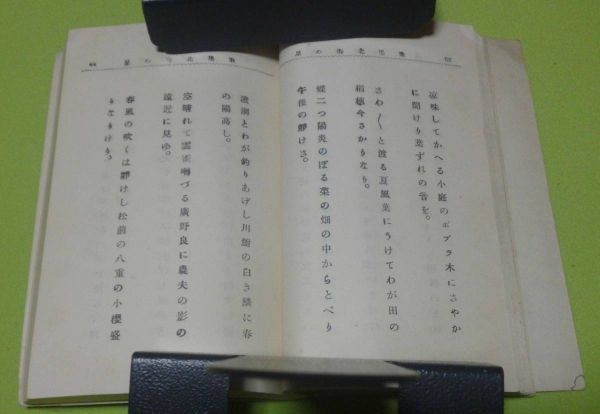 涼味してかへる小庭のポプラ木にさやか
に聞けり葉ずれの音を。
さわ〳〵と渡る夏風葉にうけてわが田の
稻穗今さかりなり。
蝶二つ陽炎のぼる菜の畑の中からとべり
午後の靜けさ。
溌溂とわが釣りあげし川鮒の白き鱗に春
の陽高し。
空晴れて雲雀囀づる廣野良に農夫の影の
遠近に見ゆ。
春風の吹くは靜けし松前の八重の小櫻盛
りなりけり。